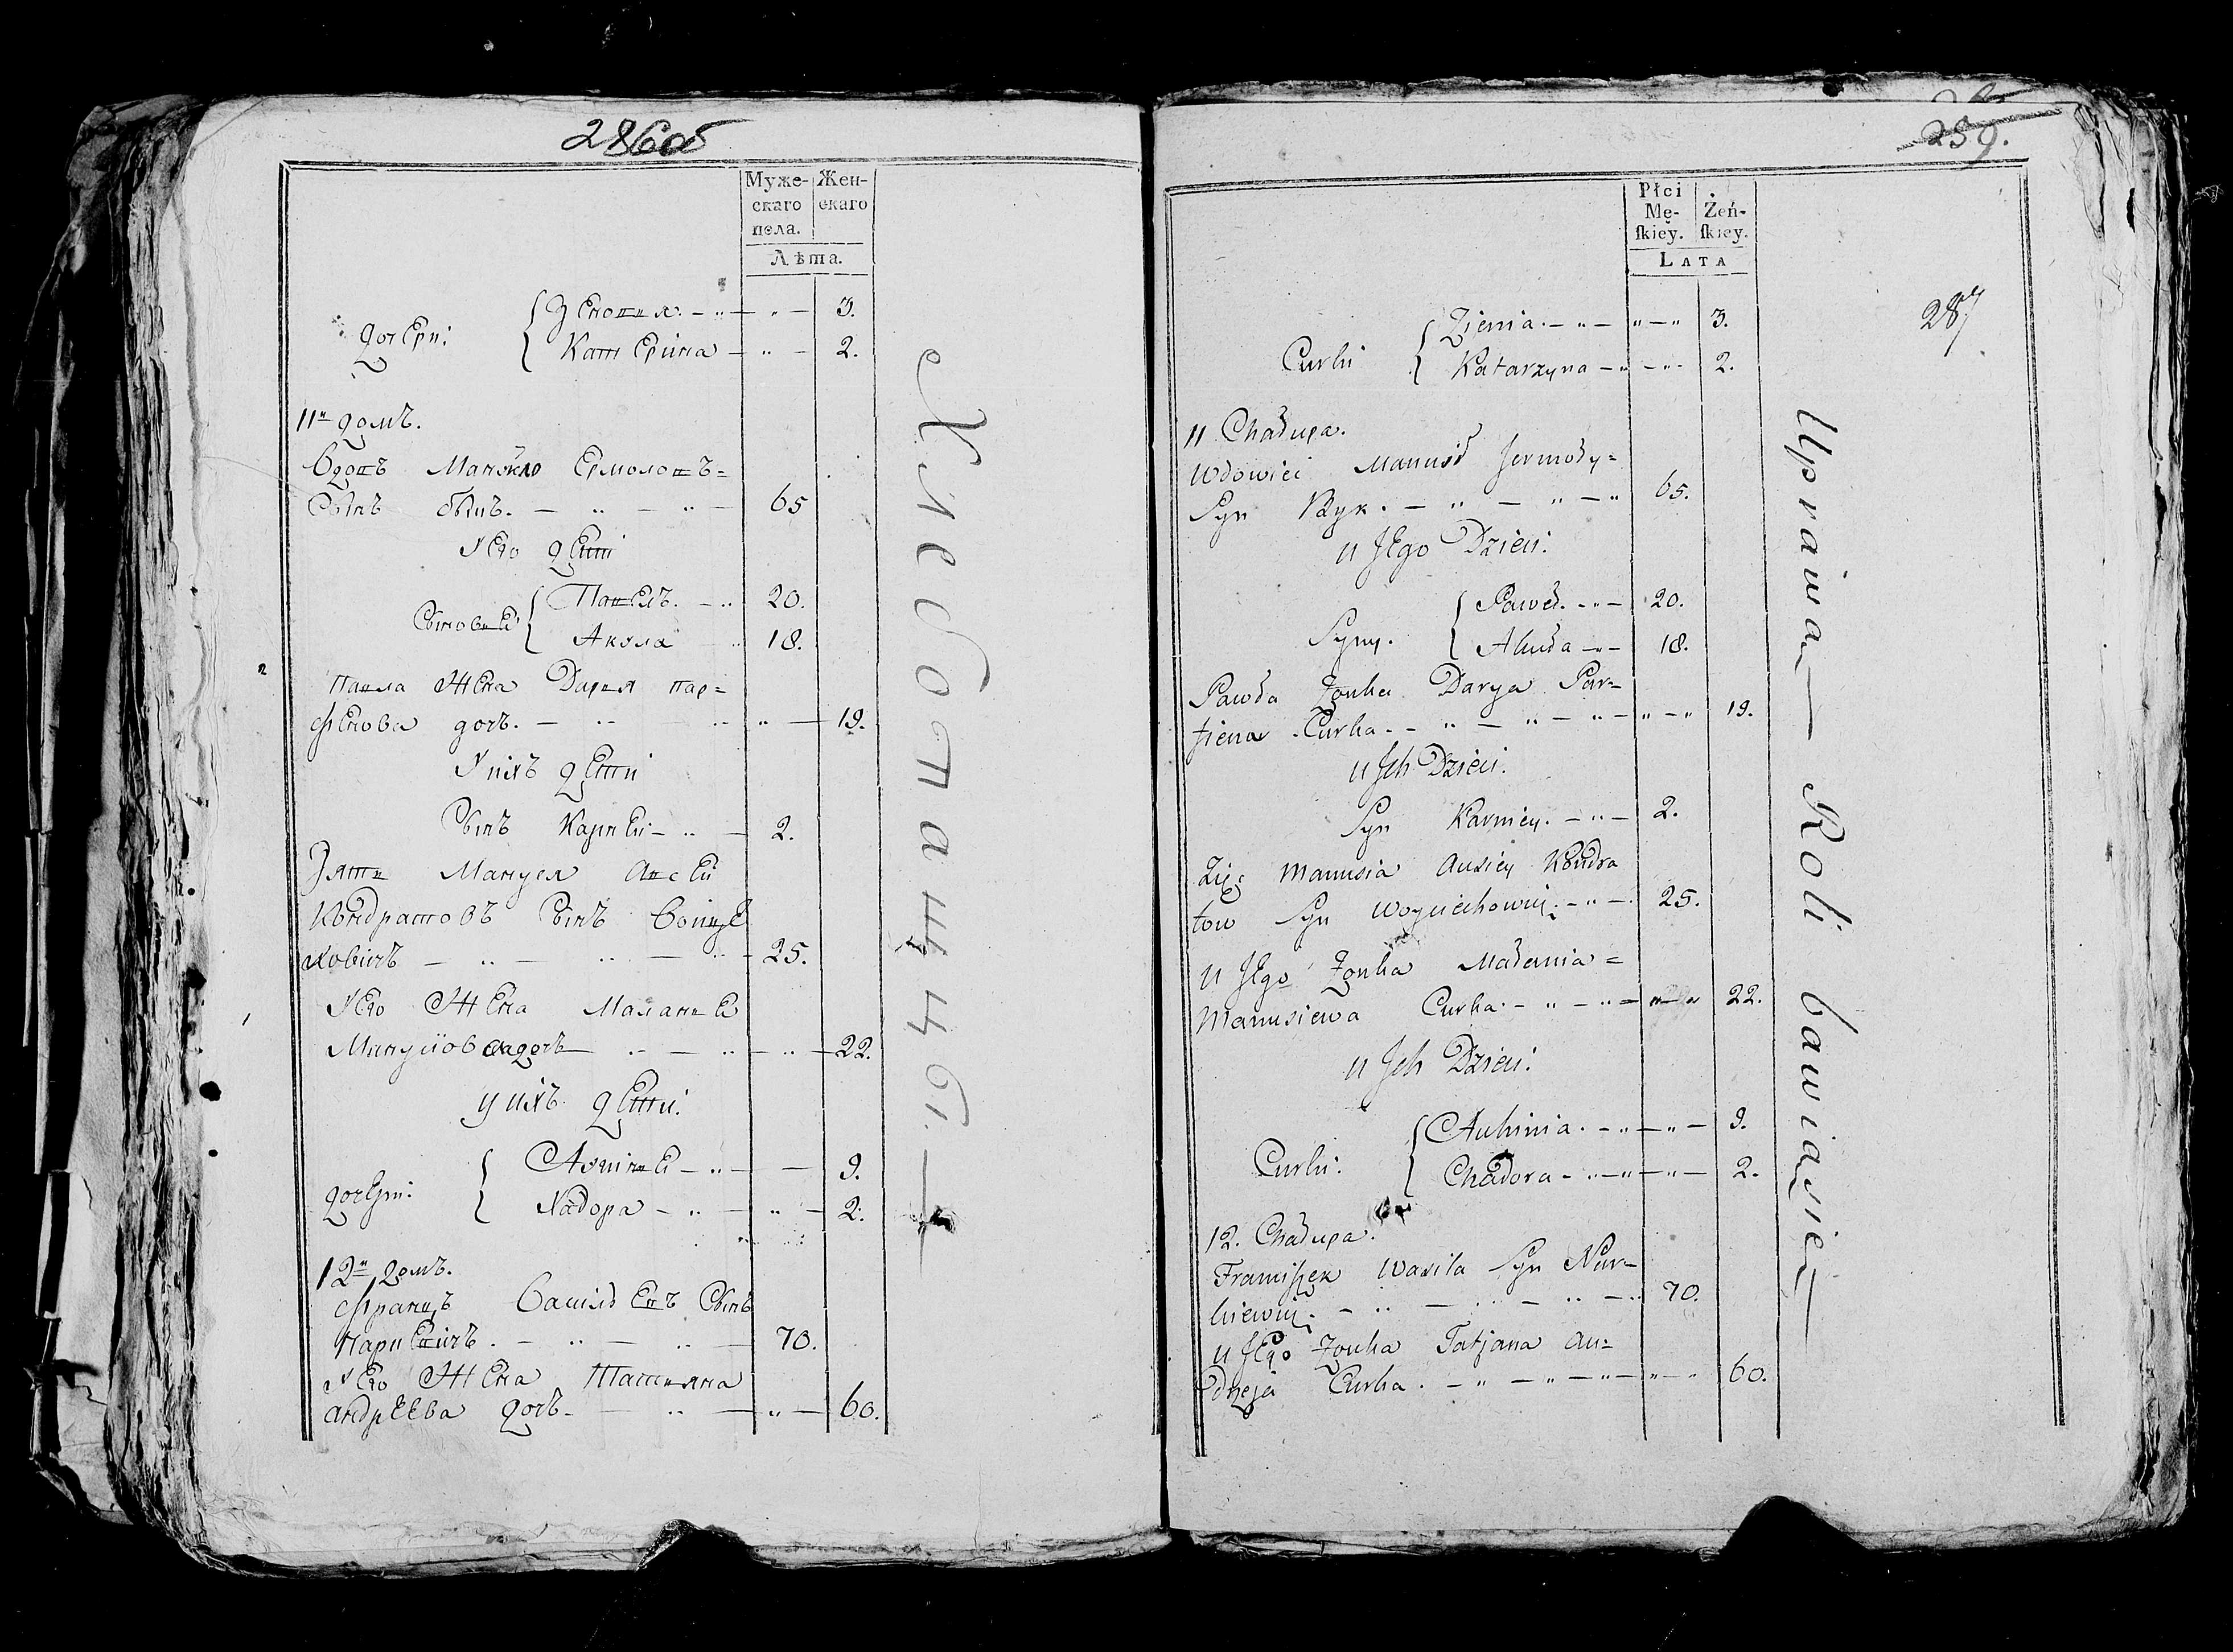 286об
Муже-
скаго
пола.
Жен-
скаго
Лѣта.
дочери: Зеновия. 3.
Катерина 2.
11й домъ.
Вдовъ Манойло Ермоловъ=
Сынъ 65
У Его дети
Сыновей Павелъ. 20.
Акула 18.
Павла Жена Даръя пар=
фенова дочь. 19.
У нихъ дети
Сынъ Карпей 2.
Зять Мануся Авсей
Кондратовъ Сынъ Войце
ховичъ 25.
У Его Жена Маланъя
Мануйова дочь 22.
У нихъ дети:
дочери: 9.
Хадора 2.
12й домъ.
Францъ Василевъ Сынъ
70.
У Его Жена Татьяна
андреева дочь 60.
Хлебопащцы.
259.
287
Płci
Mę-
ſkiey.
Żeń-
ſkiey.
LATA
Curki Zienia. 3.
Katarzyna 2.
11 Chałupa.
Wdowiec Manuś Jermoły=
Syn Byk. 65.
u Jego Dzieci:
Syny. Paweł. 20.
Akuła 18.
Pawła Żonka Darya Par=
fiena Curka. 19.
u Jch Dzieci.
Syn Karniey. 2.
Zięć Manusia Ausiey Kondra
tow Syn Woyciechowicz. 25.
u Jego Żonka Małania=
Manusiewa Curka. 22.
u Jch Dzieci:
Curki: Auhinia. 9.
Chadora 2.
12. Chałupa.
Franciſzek Wasila Syn Nar=
kiewicz. 70.
u Jego Żonka Tatjana An=
drzeja Curka. 60.
Uprawą Roli bawią się